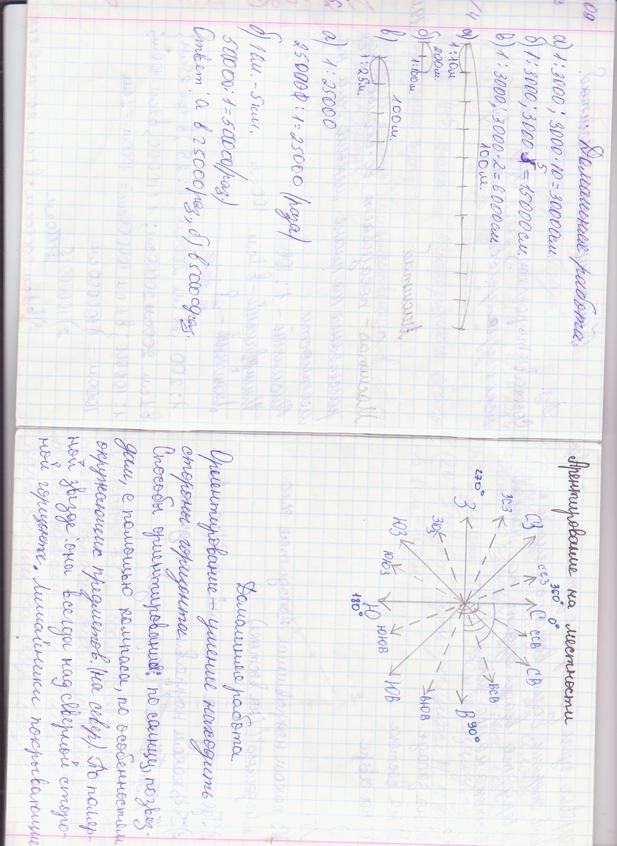 Домашние работа.
а) 1:3000; 3000·10=30000см
б) 1:3000; 3000·5=15000см.
в) 1:3000; 3000·2=6000см
14
а) 100м.
1:10м
б) 200м.
1:100м.
в) 100м.
1:25м.
а) 1:25000
25000:1=25000 (раза)
б) 1см. - 5км.
50000:1=50000(раз)
Ответ: а в 25000раз, б) в 5000раз.
Арентирование на местности
СЗ
ссз
360°
0°
С
ССВ
СВ
ЗСЗ
ВСВ
270°
З
В 90°
ЗЮЗ
ВЮВ
ЮЗ
ЮЮЗ
Ю
180°
ЮЮВ
ЮВ
Домашнее работа
Ориентирование – умение находить
стороны горизонта.
Способы ориентирования: по солнцу, по звёз-
дам, с помощью компаса, по особенностям
окружающих предметов. (на север). По поляр-
ной звезде: она всегда над северной сторо-
ной горизонта. Лишайники покрывающие